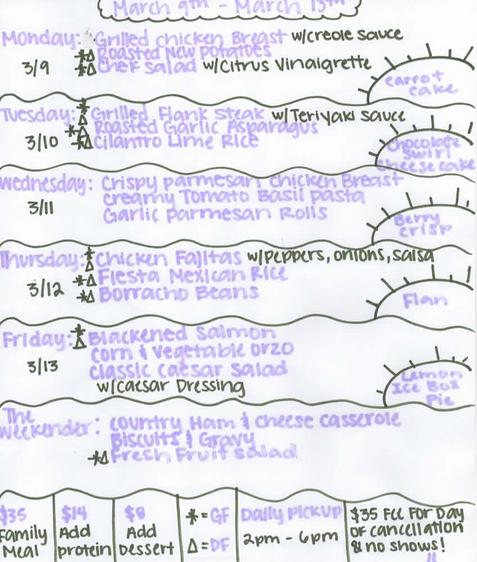 March 9th - March 13th
Monday: Grilled chicken Breast w/creole sauce
*Δ Roasted New potatoes
3/9 *Δ chef salad w/Citrus Vinaigrette
carrot
cake
Tuesday: *Δ Grilled Flank steak w/Teriyaki sauce
*Δ Roasted Garlic Asparagus
3/10 *Δ cilantro Lime Rice
chocolate
swirl
cheesecake
Wednesday: Crispy parmesan chicken Breast
3/11 creamy Tomato Basil pasta
Garlic parmesan Rolls
Berry
crisp
Thursday: *Δ chicken Fajitas w/peppers, onions, salsa
*Δ Fiesta Mexican Rice
3/12 *Δ Borracho Beans
Flan
Friday: *Δ Blackened Salmon
corn & vegetable orzo
3/13 classic caesar salad
w/caesar Dressing
Lemon
Ice Box
Pie
The
Weekender: country Ham & cheese casserole
Biscuits & Gravy
*Δ Fresh Fruit salad
$35
Family
Meal
$14
Add
protein
$8
Add
dessert
* = GF
Δ = DF
Daily Pickup
2pm - 6pm
$35 Fee FOR Day
OF cancellation
& no shows!